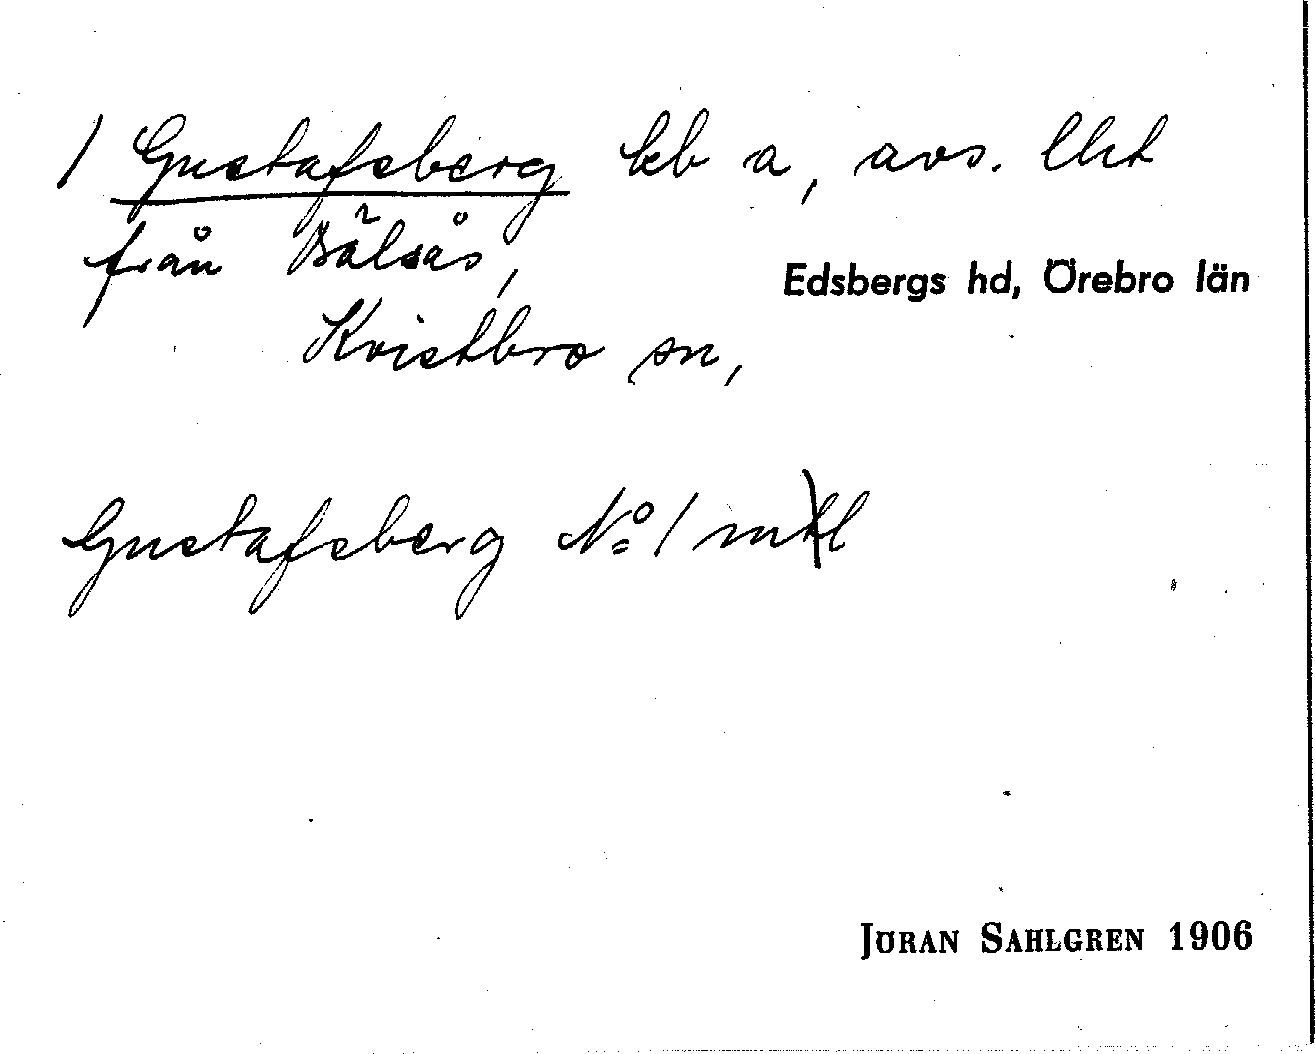 1 Gustafsberg kb a, avs. lht
från Bälsås,
Edsbergs hd, Örebro län
Kvistbro sn,
Gustafsberg No 1 mtl
JÖRAN SAHLGREN 1906